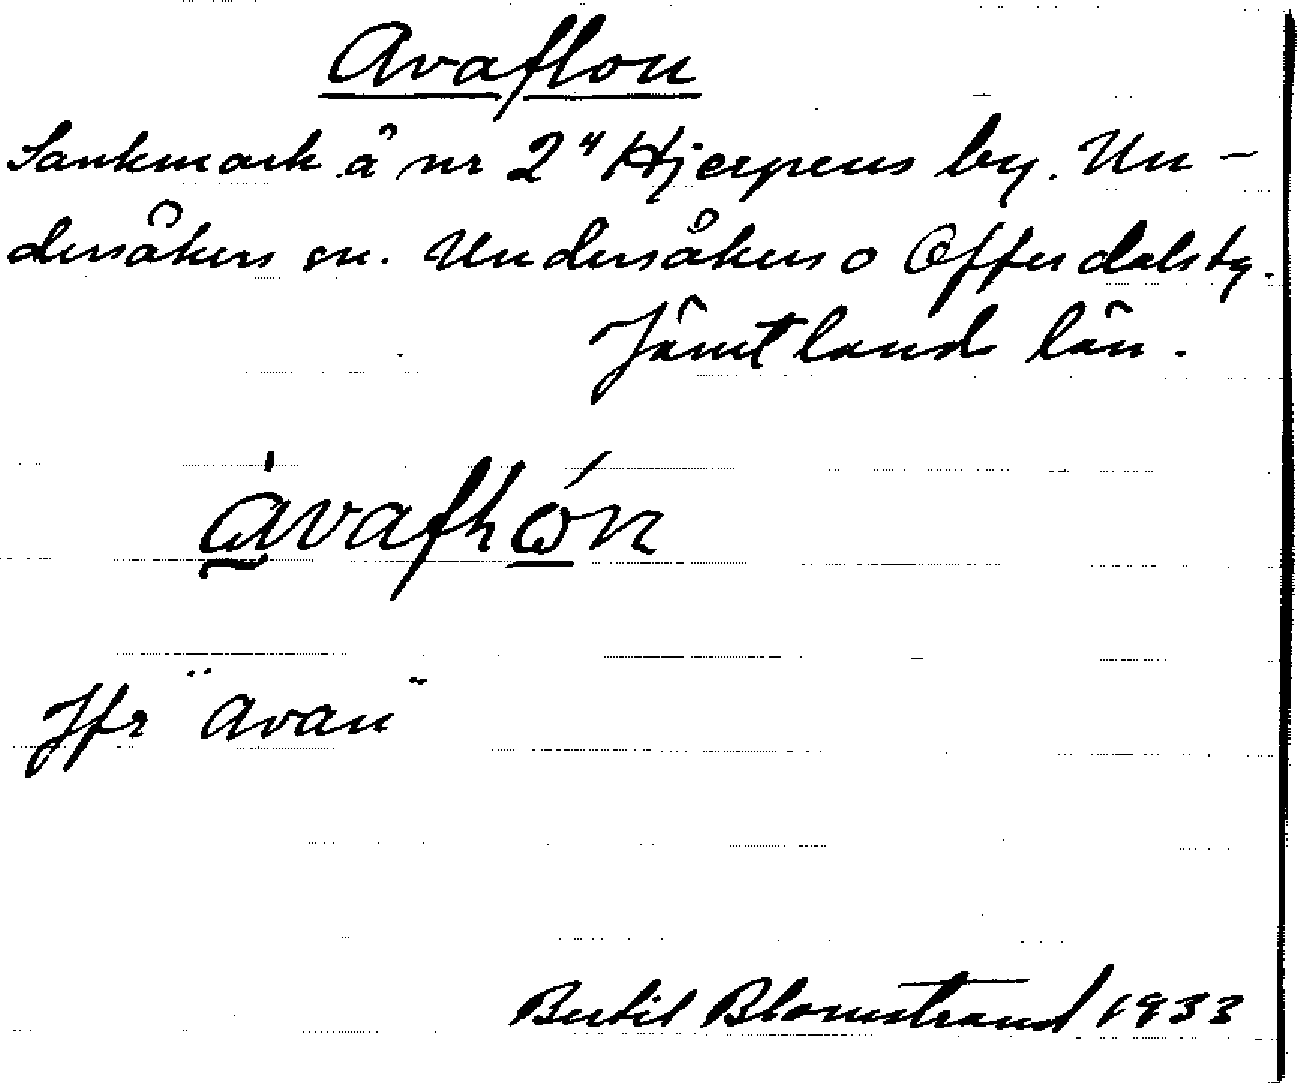 Avaflon
Sankmark å nr 2" Hjerpens by. Un-
dersåkers sn. Undersåkers o Offerdals tg.
Jämtland län.
ávafłón
Jfr "Avan"
Bertil Blomstrand / 1933